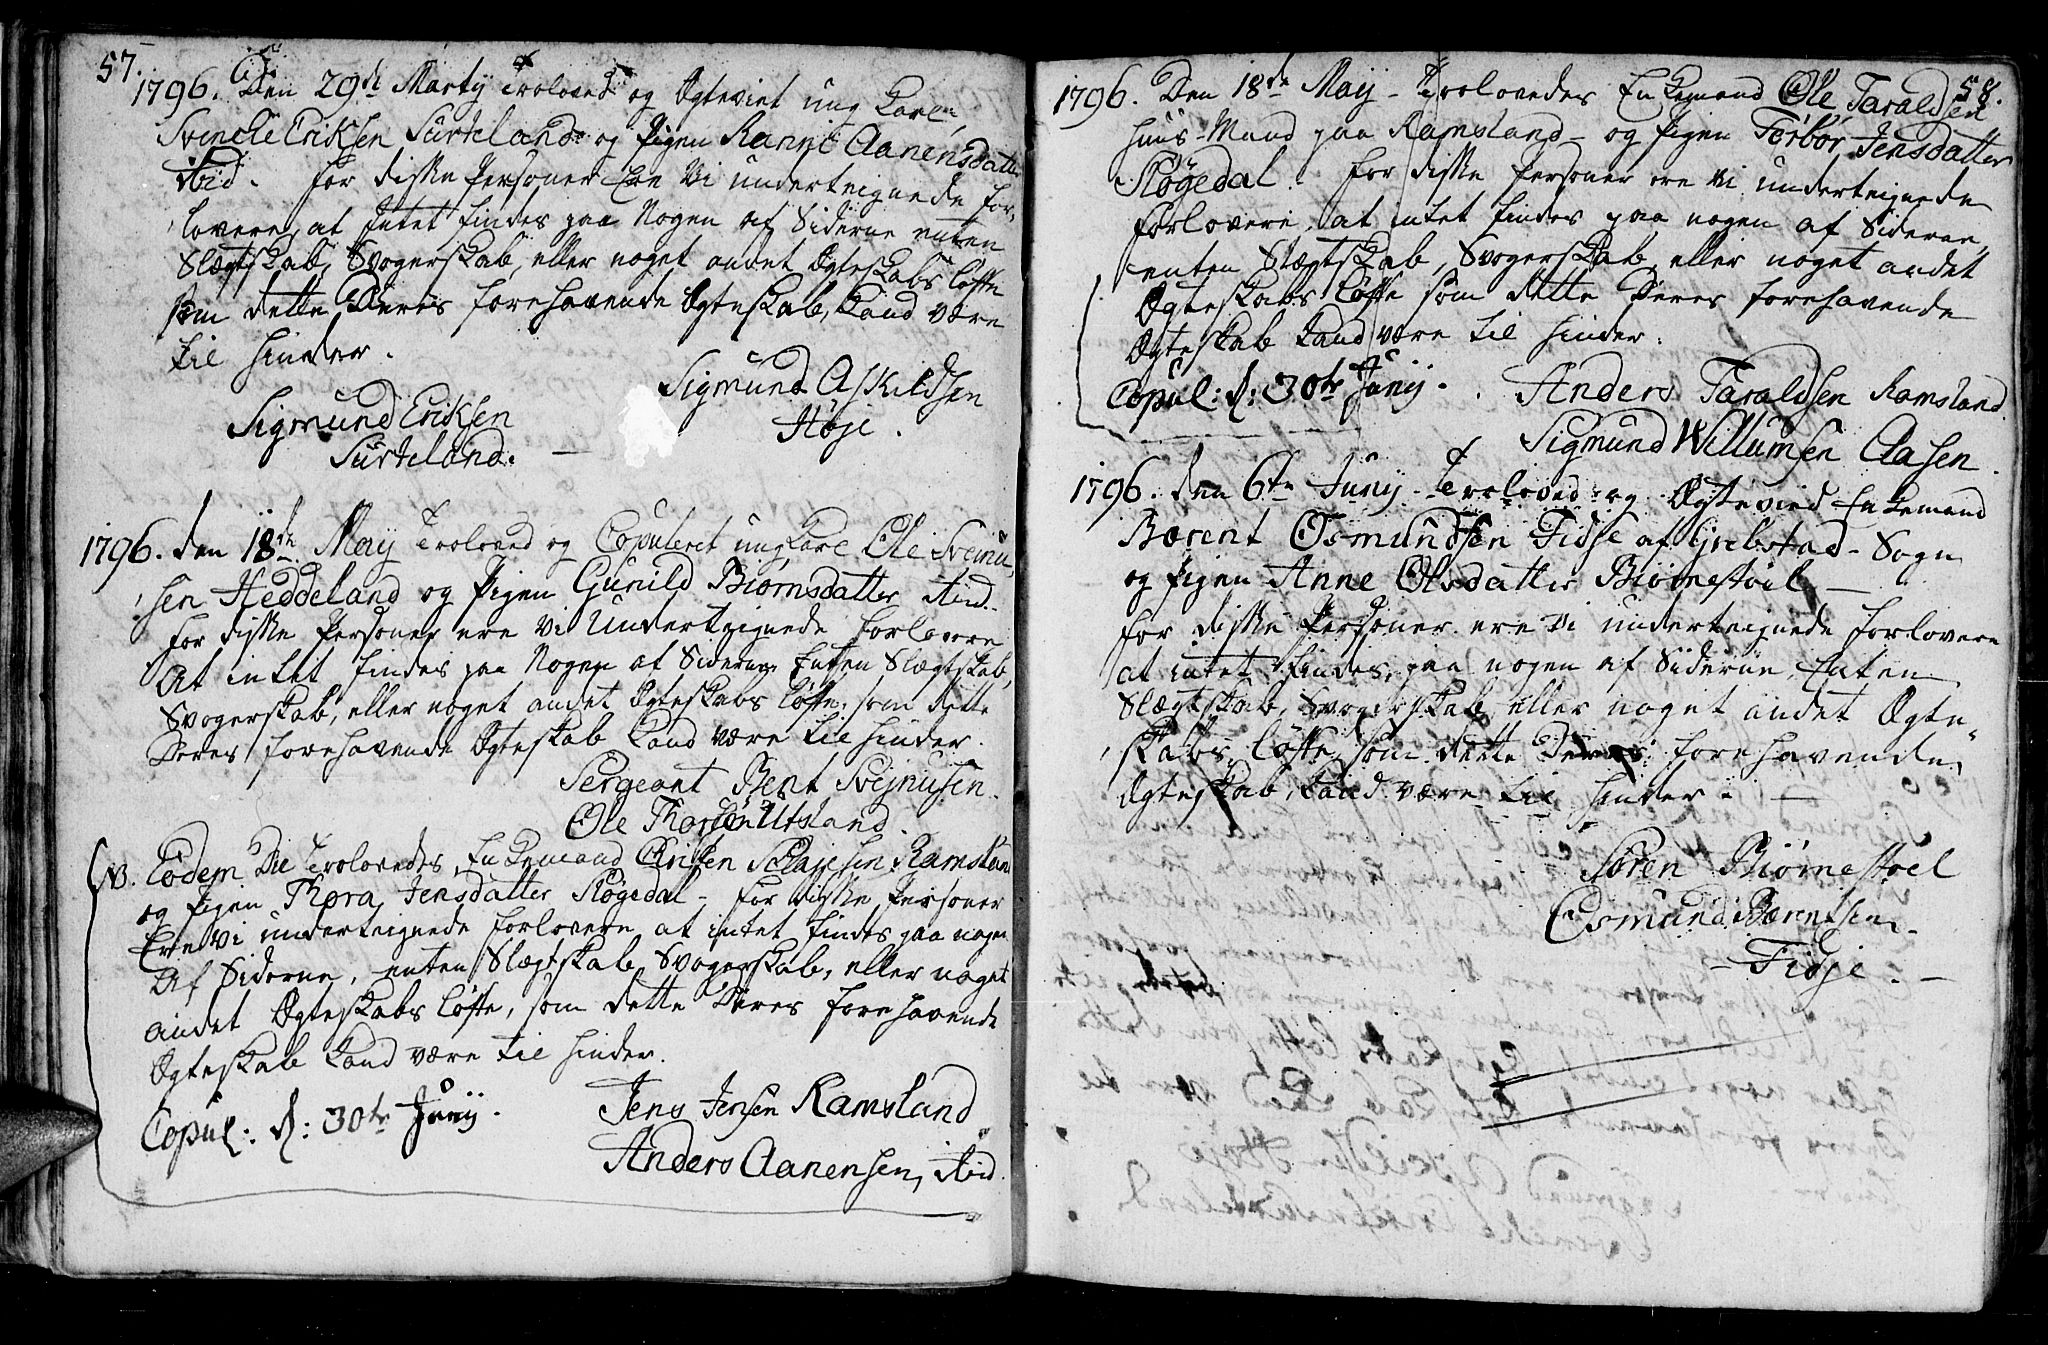 57.
1796. Den 29de Martÿ Troloved og Ægteviet ung Karl
Svinche Eriksen Surteland og Pigen Ranni Aanensdatter
ibid. For diske Personer Ere Vi underteignede For-
lovere, at Intet findes paa Nogen af Siderne enten
Slægtskab, Svogerskab, eller noget andet Ægteskabs Løfte
som dette Deres forehavende Ægteskab, kand være
til hinder.
Sigmund Askildsen
Høje.
Sigmund Eriksen
Surteland.
1796. den 18de Maÿ Troloved og Copuleret ung Karl Ole Sveinu-
sen Heddeland og Pigen Gunild Biørnsdatter ibid.
for diske Personer ere Vi Underteignede Forlovere
At intet findes paa Nogen af Siderne Enten Slægtskab,
Svogerskab, eller noget andet Ægteskabs Løfte, som dette
Deres forehavende Ægteskab kand være til hinder.
Sergeant Bent Svejnusen.
Ole Thorsen Utsland.
NB. Eodem Die Trolovedes, Enkemand Christen Ramsland
og Pigen Thora Jensdatter Støgedal - For diske Personer
Ere Vi underteignede Forlovere at intet findes paa nogen
Af Siderne, enten Slægtskab, Svogerskab, eller noget
andet Ægteskabs Løfte, som dette Deres forehavende
Ægteskab kand være til hinder.
Copul: d: 30te Junij.
Jens Jensen Ramsland
Anders Aanensen, ibid.
58.
1796. Den 18de Maÿ - Trolovedes Enkemand Ole Taraldsen
huus-Mand paa Ramsland - og Pigen Torbor Jensdatter
Støgedal. For diske Personer ere Vi underteignede
Forlovere, at intet findes paa nogen af Siderne,
enten Slægtskab, Svogerskab, eller noget andet
Ægteskabs Løfte som dette Deres forehavende
Ægteskab kand være til hinder.
Copul: d: 30te Junij.
Anders Taraldsen Ramsland
Sigmund Willumsen Aasen.
1796. den 6te Junij - Troloved og Ægtevied Enkemand
Bærent Osmundsen Fidje af Grebstad - Sogn
og Pigen Anne Olsdatter Biørnestøel -
for diske Personer ere Vi underteignede forlovere
at intet findes, paa nogen af Siderne, Enten
Slægtskab, Svogerskab eller noget andet Ægte-
skabs, Løfte, som dette Deres forehavende
Ægteskab, kand være til hinder. -
Søren Biørnestøel
Osmund Bærentsen
- Fidje. -